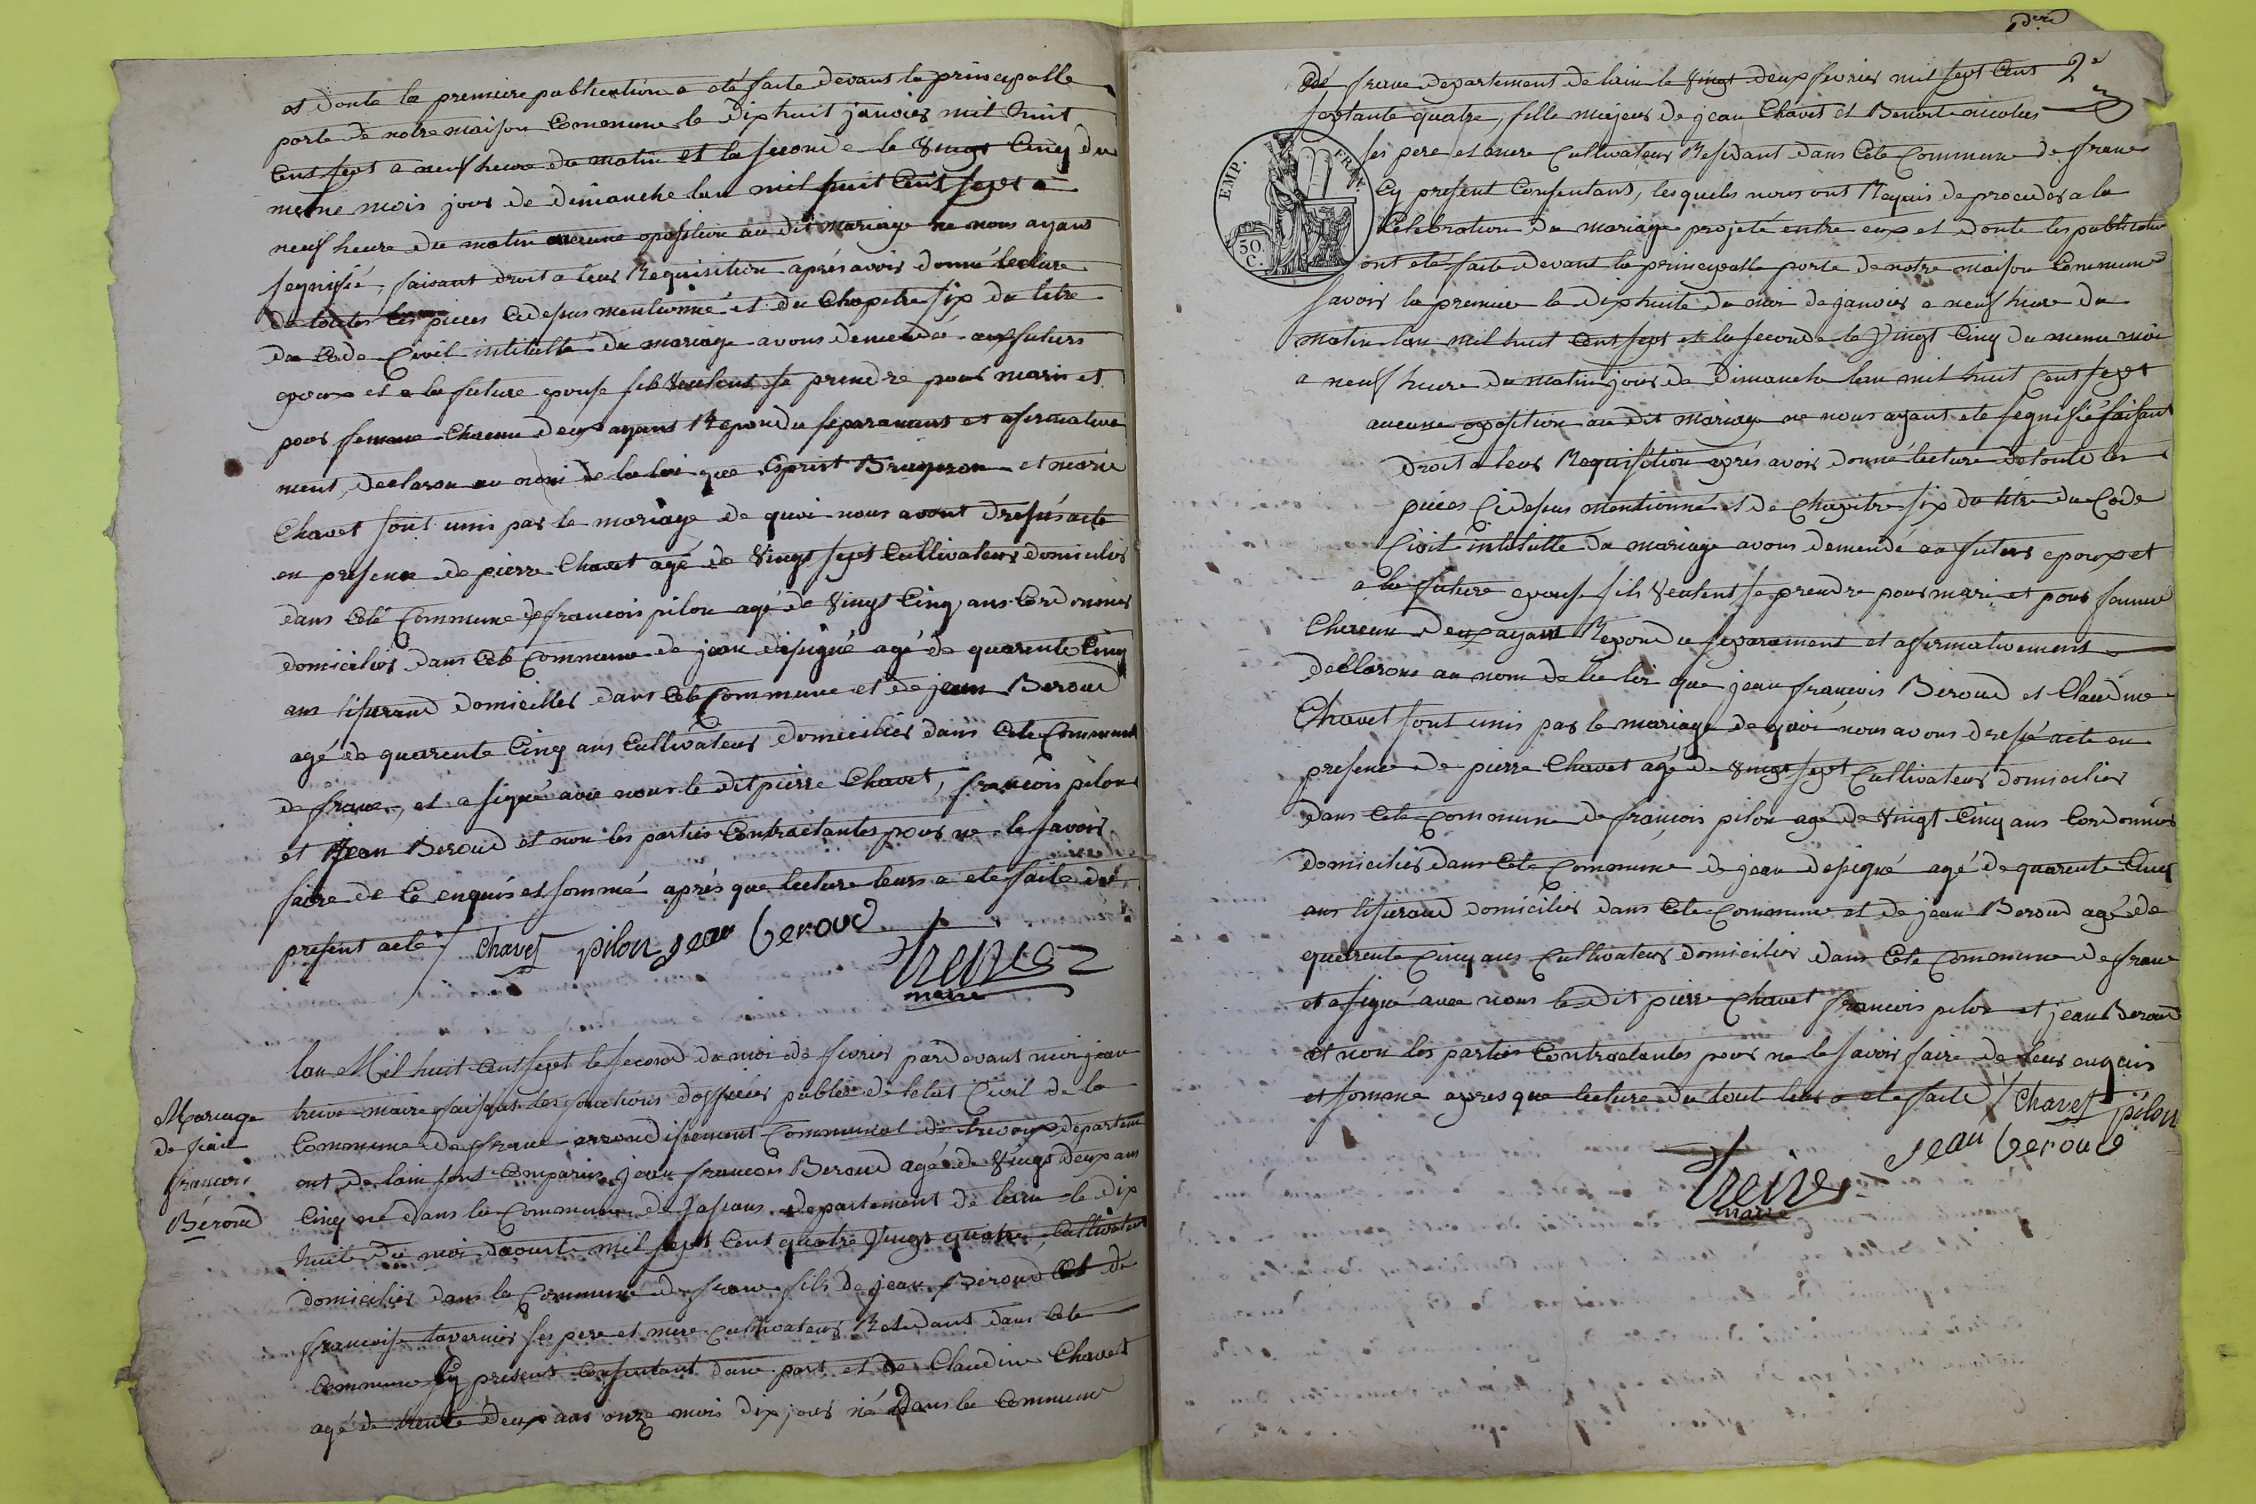 et donte la premiere publication a eté faite devant la principalle
porte de notre maison Commune le dix huit janvier mil huit
Cent sept a neuf heure du matin et la seconde le vingt Cinq du
meme mois jour de dimanche lan mil huit Cent sept a
neuf heure du matin aucune oposition au dit mariage ne nous ayant
segnifié, faisant droit a leur Requisition aprés avoir donné lecture
de toutes les pieces Cidesus mentionné et du Chapitre six du titre
du Code Civil intitullé du mariage avons demendé aux futurs
epoux et a la future epouse sils veulent se prendre pour mari et
pour femme Chacun deux ayant Repondu separament et afirmative
ment, declaron au nom de la loi que Esprit Bruyron et marie
Chavet sont unis par le mariage de quoi nous avont dressés acte
en presence de pierre Chavet agé de vingt sept Cultivateur domicilier
dans Cete Commune de francois pilon agé de vingt Cinq ans Cordonnier
domicilier dans Cete Commune de jean desigué agé de quarente Cinq
ans tiserand domicilier dans Cete Commune et de jean Beroud
agé de quarente Cinq ans Cultivateur domicilier dans Cete Commune
de frans, et a signé avec nous le dit pierre Chavet, francois pilon
et Jean Beroud et non les parties Contractantes pour ne le savoir
faire de Ce enquis et sommé aprés que lecture leurs a ete faite du
present acte / Chavet pilon jean beroud
Treive
maire
Mariage
de jean
francois
Béroud
lan Mil huit Cent sept le second du moi de fevrier pardevant moi jean
treive maire faisant les fonctions dofficier public de letat Civil de la
Commune de frans arrondissement Communal de trevoux departem
ent de lain sont Comparus jean francois Beroud agé de vingt deux ans
Cinq né dans la Commune de Jassans departement de lain le dix
huit du moi daouste mil sept Cent quatre vingt quatre, Cultivateur
domicilier dans la Commune de frans fils de jean Béroud et de
francoise tavernier ses pere et mere Cultivateur Residant dans Cete
Commune Cy present consentant dune part et de Claudine Chavet
agé de trente deux ans onze mois dix jour né dans la Commune
2e
de frans departement de lain le vingt deux fevrier mil sept Cent
septante quatre, fille majeur de jean Chavet et Benoite nicolas
ses pere et mere Cultivateur Residant dans Cete Commune de frans
Cy present Consentant, lesquels nous ont Requis de proceder a la
Celebration du mariage projeté entre eux et donte les publication
ont eté faite devant la principalle porte de notre maison Commune
savoir la premiere le dix huite du moi de janvier a neuf heure du
matin lan mil huit Cent sept et la seconde le vingt Cinq du meme moi
a neuf heure du matin jour de dimanche lan mil huit Cent sept
aucune oposition au dit mariage ne nous ayant ete segnifié faisant
droit a leur Requisition aprés avoir donné lecture de toute les
pieces Cidesus mentionné et de Chapitre six du titre du Code
Civil intitullé du mariage avons demendé au futur epoux et
a la future epouse sils veulent se prendre pour mari et pour famme
Chacun deux ayant Repondu separament et afirmativement
declarons au nom de la loi que jean francois Beroud et Claudine
Chavet sont unis par le mariage de quoi nous avons dressé acte en
presence de pierre Chavet agé de vingt sept Cultivateur domicilier
dans Cete Commune de francois pilon agé de vingt Cinq ans Cordonnier
domicilier dans Cete Commune de jean desigué agé de quarente Cinq
ans tiserand domicilier dans Cete Commune et de jean Beroud agé de
quarente Cinq ans Cultivateur domicilier dans Cete Commune de frans
et a signé avec nous le dit pierre Chavet francois pilon et jean Beroud
et non les parties Contractantes pour ne le savoir faire de leur enquis
et somme apres que lecture du tout leur a ete faite / Chavet pilon
jean beroud
Treive
maire
EMP. FRA.
50.
C.